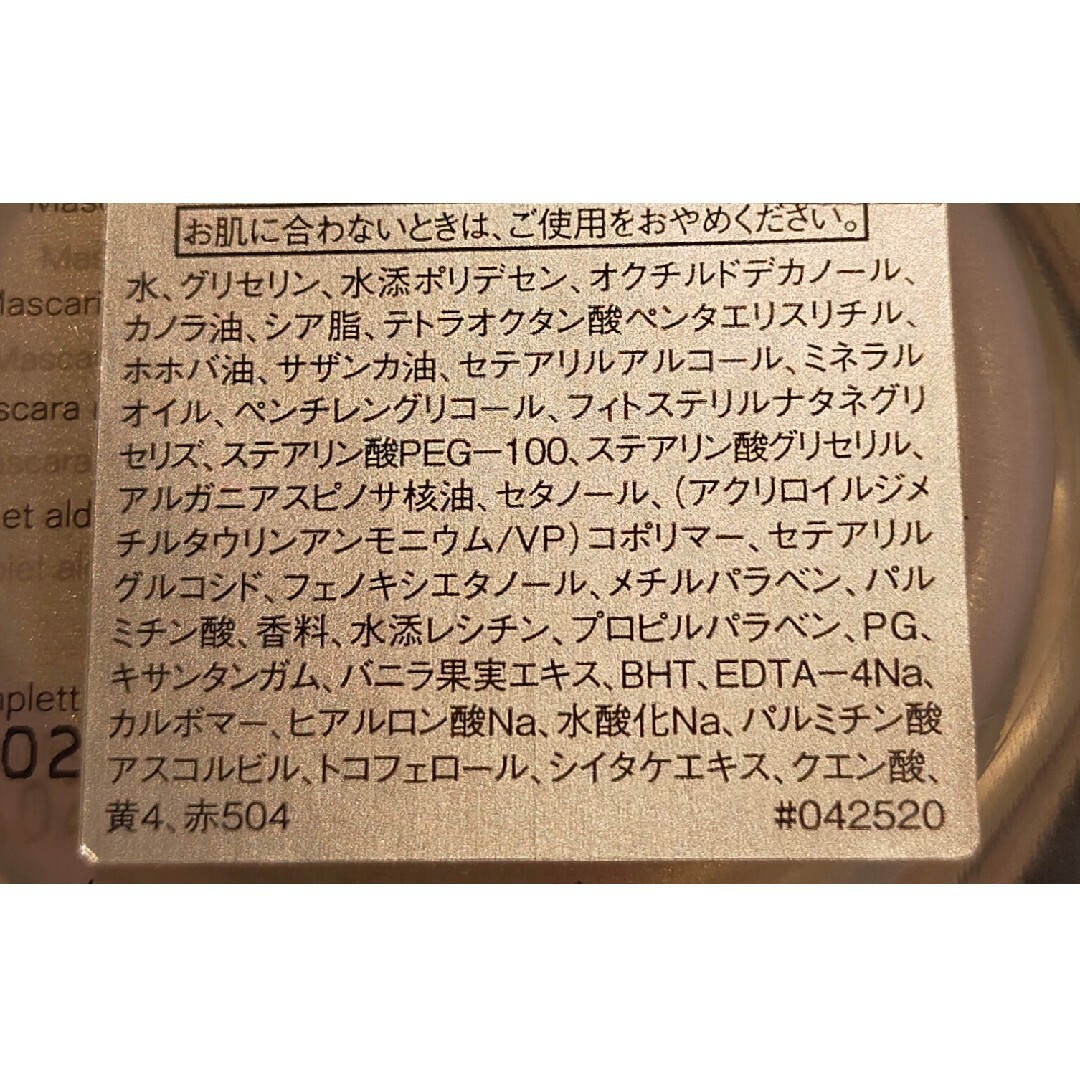 お肌に合わないときは、ご使用をおやめください。
水、グリセリン、水添ポリデセン、オクチルドデカノール、
カノラ油、シア脂、テトラオクタン酸ペンタエリスリチル、
ホホバ油、サザンカ油、セテアリルアルコール、ミネラル
オイル、ペンチレングリコール、フィトステリルナタネグリ
セリズ、ステアリン酸PEG－100、ステアリン酸グリセリル、
アルガニアスピノサ核油、セタノール、(アクリロイルジメ
チルタウリンアンモニウム/VP)コポリマー、セテアリル
グルコシド、フェノキシエタノール、メチルパラベン、パル
ミチン酸、香料、水添レシチン、プロピルパラベン、PG、
キサンタンガム、バニラ果実エキス、BHT、EDTA－4Na、
カルボマー、ヒアルロン酸Na、水酸化Na、パルミチン酸
アスコルビル、トコフェロール、シイタケエキス、クエン酸、
黄4、赤504 #042520
Mascari
scara
et ald
plett
02